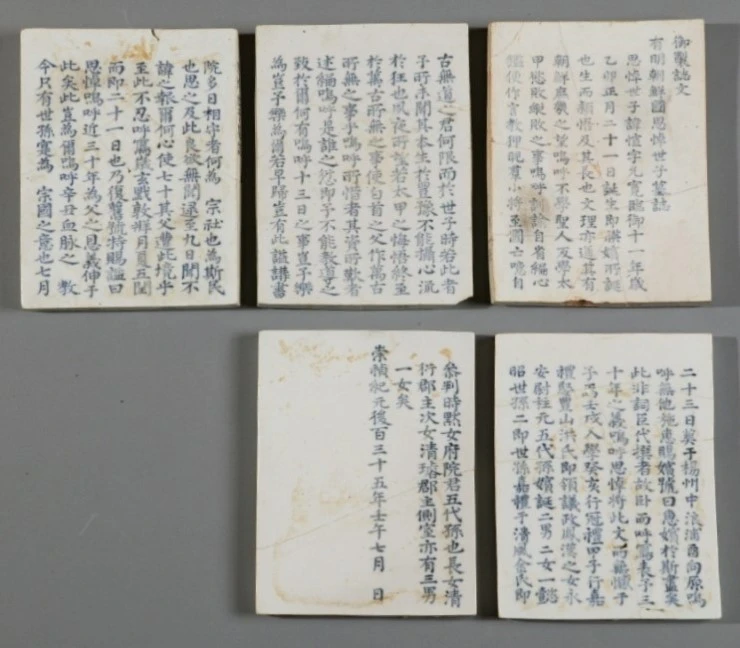 御製誌文
有明朝鮮國思悼世子墓誌
思悼世子諱愃字允寬臨御十一年歲
乙卯正月二十一日誕生即暎嬪所誕
也生而穎悟及其長也文理亦通其有
朝鮮興樂之望嗚呼不學聖人反學太
甲慾敗縱敗之事嗚呼訓諭自省編心
鑑便作言教狎昵羣小將至國亡噫自
古無道之君何限而於世子時若此者
予所未聞其本生於豐豫不能攝心流
於狂也夙夜所望若太甲之悔悟終至
於萬古所無之事使白首之父作萬古
所無之事乎嗚呼所惜者其資所歎者
述編嗚呼是誰之愆即予不能教導之
致於爾何有嗚呼十三日之事豈予樂
為豈予樂為爾若早歸豈有此謚講書
院多日相守者何為 宗社也為斯民
也思之及此良欲無聞逮至九日聞不
諱之報爾何心使七十其父遭此境乎
至此不忍呼寫歲玄戰敦牂月夏五閏
而即二十一日也乃復舊號特賜謚曰
思悼嗚呼近三十年為父之恩義伸于
此矣此豈為爾嗚呼辛丑血脉之 教
今只有世孫寔為 宗國之意也七月
二十三日葬于楊州中浪浦酉向原嗚
呼無他施惠賜嬪號曰惠嬪於斯盡矣
此非詞臣代撰者故臥而呼寫表予三
十年之義嗚呼思悼將此文而無憾于
予焉壬戌入學癸亥行冠禮甲子行嘉
禮娶豐山洪氏即領議政鳳漢之女永
安尉柱元五代孫嬪誕二男二女一懿
昭世孫二即世孫嘉禮于清風金氏即
參判時默女府院君五代孫也長女清
衍郡主次女清璿郡主側室亦有三男
一女矣
崇禎紀元後百三十五年壬午七月 日